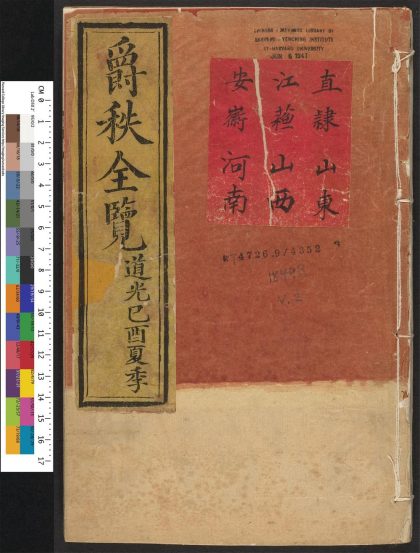 直隸山東
江蘓山西
安徽河南
爵秩全覽
道光己酉夏季
CHINESE-JAPANESE LIBRARY OF
HARVARD-YENCHING INSTITUTE
AT HARVARD UNIVERSITY
JUN 6 1947
4726.9/4352
V.2
CM 0 1 2 3 4 5 6 7 8 9 10 11 12 13 14 15 16 17